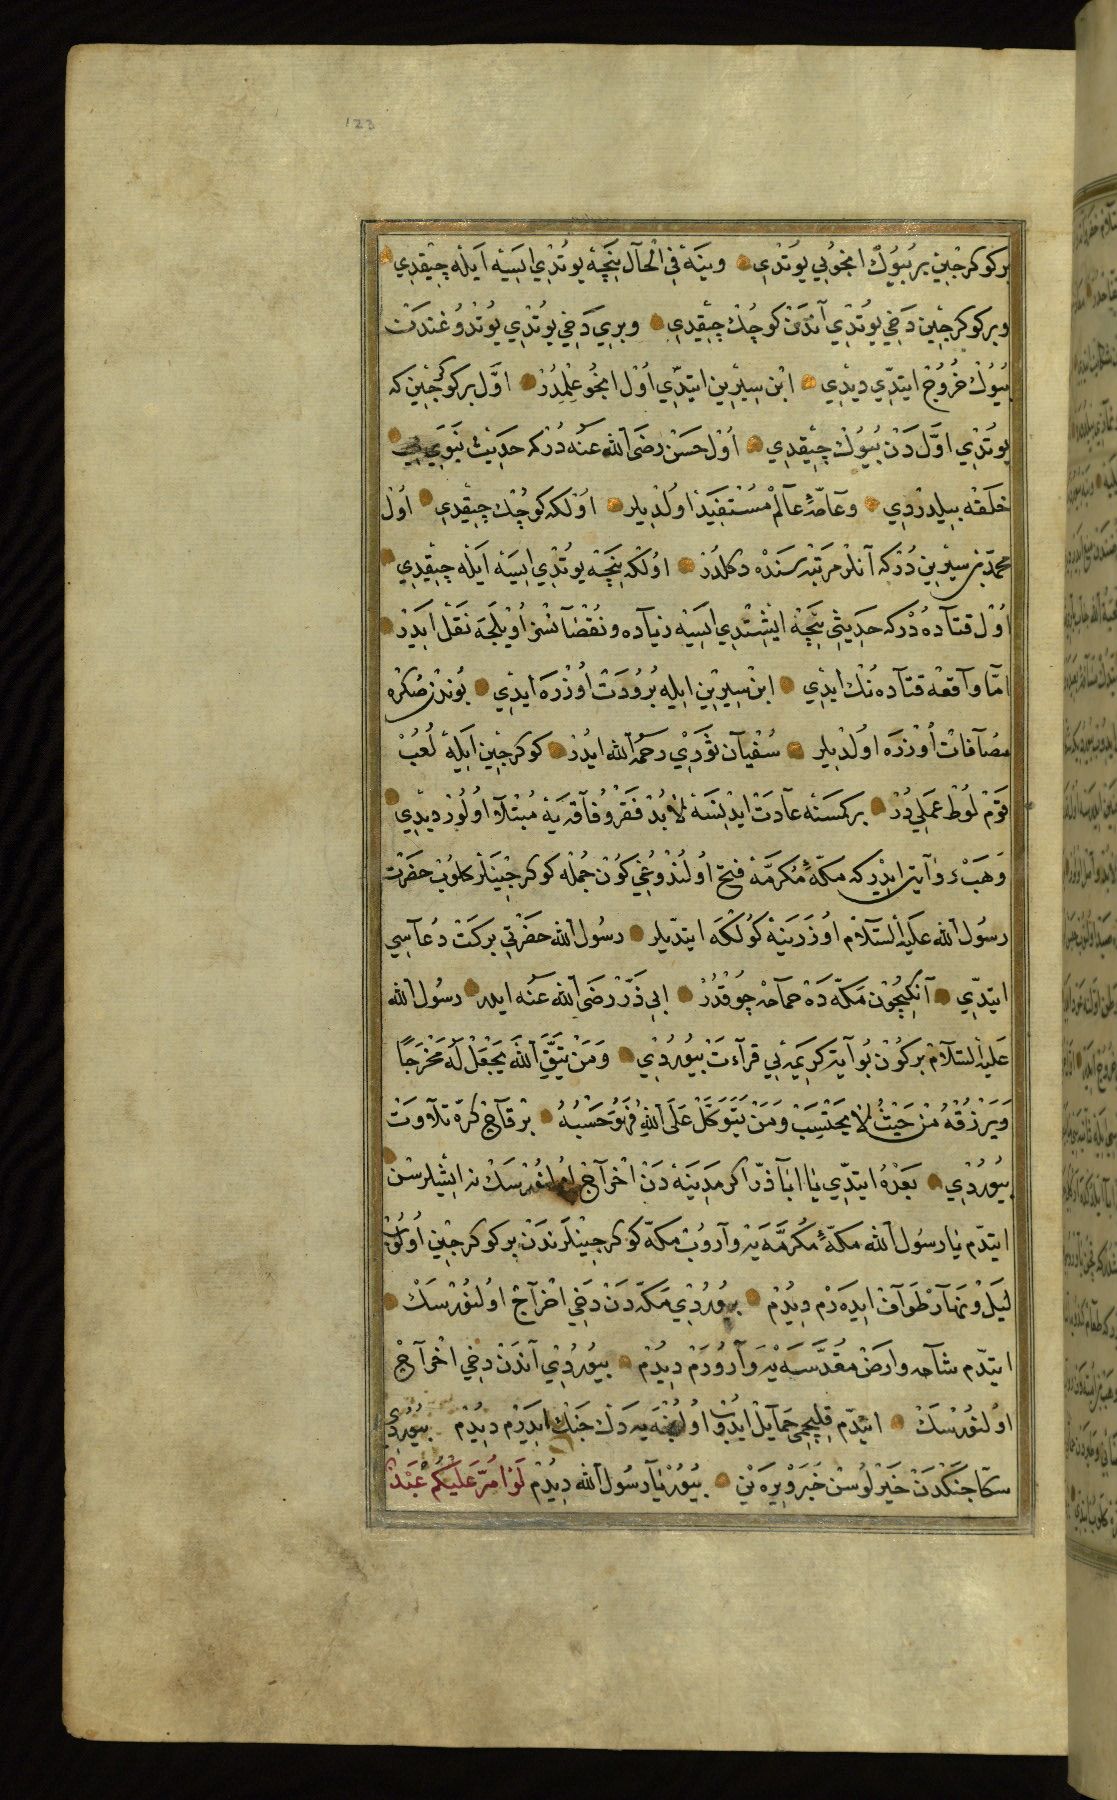 123
بر كوكرجين بر بيوك انجويى يوتدى وينه فى الحال نيجه يوتدى ايسه ايله چيقدى
وبر كوكرجين دخى يوتدى آندن كوچك چيقدى وبرى دخى يوتدى يوتدوغندن
بيوك خروج ايتدى ديدى ابن سيرين ايتدى اول انجو علمدر اول بر كوكرجين كه
يوتدى اولدن بيوك چيقدى اول حسن رضى الله عنه دركه حديث نبوى
خلقه بيلدردى وعامه عالم مستفيد اولديلر اولكه كوچك چيقدى اول
محمد بن سيرين دركه آنلر مرتبه سنده دكلدر اولكه نيجه يوتدى ايسه ايله چيقدى
اول قتاده دركه حديثى نيجه ايشتدى ايسه زياده ونقصانسز اويلجه نقل ايدر
اما واقعه قتاده نك ايدى ابن سيرين ايله برودت اوزره ايدى بوندن صكره
مصافات اوزره اولديلر سفيان ثورى رحمه الله ايدر كوكرجين ايله لعب
قوم لوط عملى در بر كمسنه عادت ايدنسه لابد فقر وفاقه يه مبتلا اولور ديدى
وهب روايت ايدر كه مكه مكرمه فتح اولندوغى كون جمله كوكرجينلر كلوب حضرت
رسول الله عليه السلام اوزرينه كولكه ايتديلر رسول الله حضرتى بركت دعاسى
ايتدى آنكيچون مكه ده حمامه چوقدر ابى ذر رضى الله عنه ايدر رسول الله
عليه السلام بر كون بو آيت كريمه يى قرآءت بيوردى ومن يتق الله يجعل له مخرجا
ويرزقه من حيث لا يحتسب ومن يتوكل على الله فهو حسبه بر قاچ كره تلاوت
بيوردى بعده ايتدى يا ابا ذر اكر مدينه دن اخراج اولنورسك نه ايشلرسن
ايتدم يا رسول الله مكه مكرمه يه واروب مكه كوكرجينلرندن بر كوكرجين اولوب
ليل ونهار طواف ايده رم ديدم بيوردى مكه دن دخى اخراج اولنورسك
ايتدم شامه وارض مقدسه يه واررم ديدم بيوردى آندن دخى اخراج
اولنورسك ايتدم قليچمى حمايل ايدوب اولنجه يه دك جنك ايدرم ديدم بيوردى
سكا جنكدن خيرلوسن خبر ويره ين بيور يا رسول الله ديدم لو امر عليكم عبد